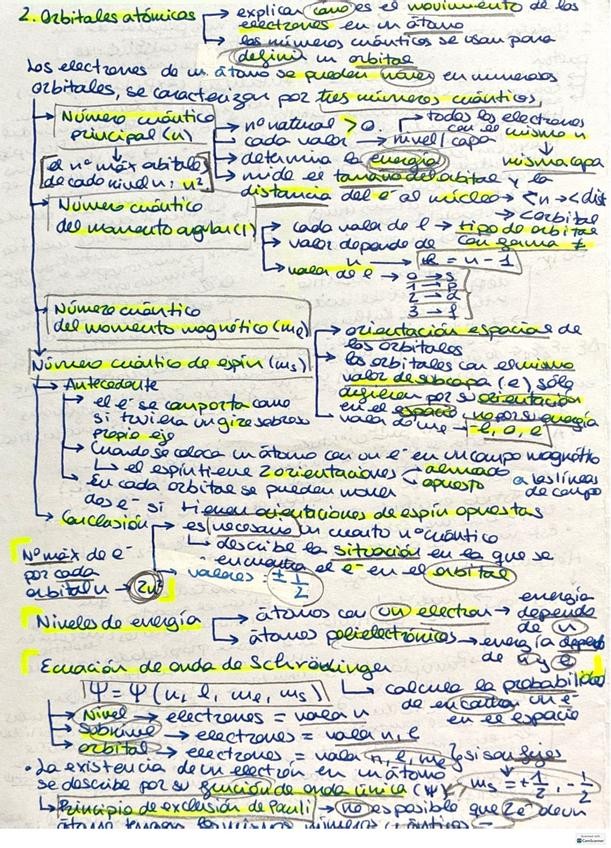 2. Orbitales atómicos → explican como es el movimiento de los
electrones en un átomo
→ los números cuánticos se usan para
definir un orbital
Los electrones de un átomo se pueden mover en numerosos
orbitales, se caracterizan por tres números cuánticos,
Número cuántico
principal (n)
→ nº natural > 0.
→ cada valor → nivel/capa
→ todos los electrones
con el mismo n
misma capa
→ determina la energía
→ mide el tamaño del orbital y la
distancia del e⁻ al núcleo → < n → < dist
→ < orbital
el nº máx orbitales
de cada nivel n, n²
Número cuántico
del momento angular (l)
→ cada valor de l → tipo de orbital
→ valor depende de
n
con forma
→ l = n - 1
→ valor de l → 0 → s
1 → p
2 → d
3 → f
Número cuántico
del momento magnético (mₑ)
→ orientación espacial de
los orbitales
→ los orbitales con el mismo
valor de subcapa (e) sólo
difieren por su orientación
en el espacio, no por su energía
→ valor de mₑ → -l, 0, l
Número cuántico de espín (ms)
→ Antecedente
→ el e⁻ se comporta como
si tuviera un giro sobre su
propio eje
→ Cuando se coloca un átomo con un e⁻ en un campo magnético
→ el espín tiene 2 orientaciones
alineado
opuesto
a las líneas
de campo
→ En cada orbital se pueden mover
dos e⁻ si tienen orientaciones de espín opuestas
→ Conclusión → es necesario un cuarto nº cuántico
→ describe la situación en la que se
encuentra el e⁻ en el orbital
→ valores = ± 1/2
Nº máx de e⁻
por cada
orbital n → 2n²
Niveles de energía → átomos con un electrón → energía
depende
de n
→ átomos polielectrónicos → energía depende
de n y l
Ecuación de onda de Schrödinger
Ψ = Ψ (n, l, mₑ, ms)
→ calcula la probabilidad
de encontrar un e⁻
en el espacio
→ Nivel → electrones = valor n
→ subnivel → electrones = valor n, l
→ orbital → electrones = valor n, l, mₑ } si son fijos
• La existencia de un electrón en un átomo
se describe por su función de onda única (Ψ)
ms = +1/2, -1/2
→ Principio de exclusión de Pauli → no es posible que 2 e⁻ de un
átomo tengan los mismos números cuánticos
Scanned with
CamScanner